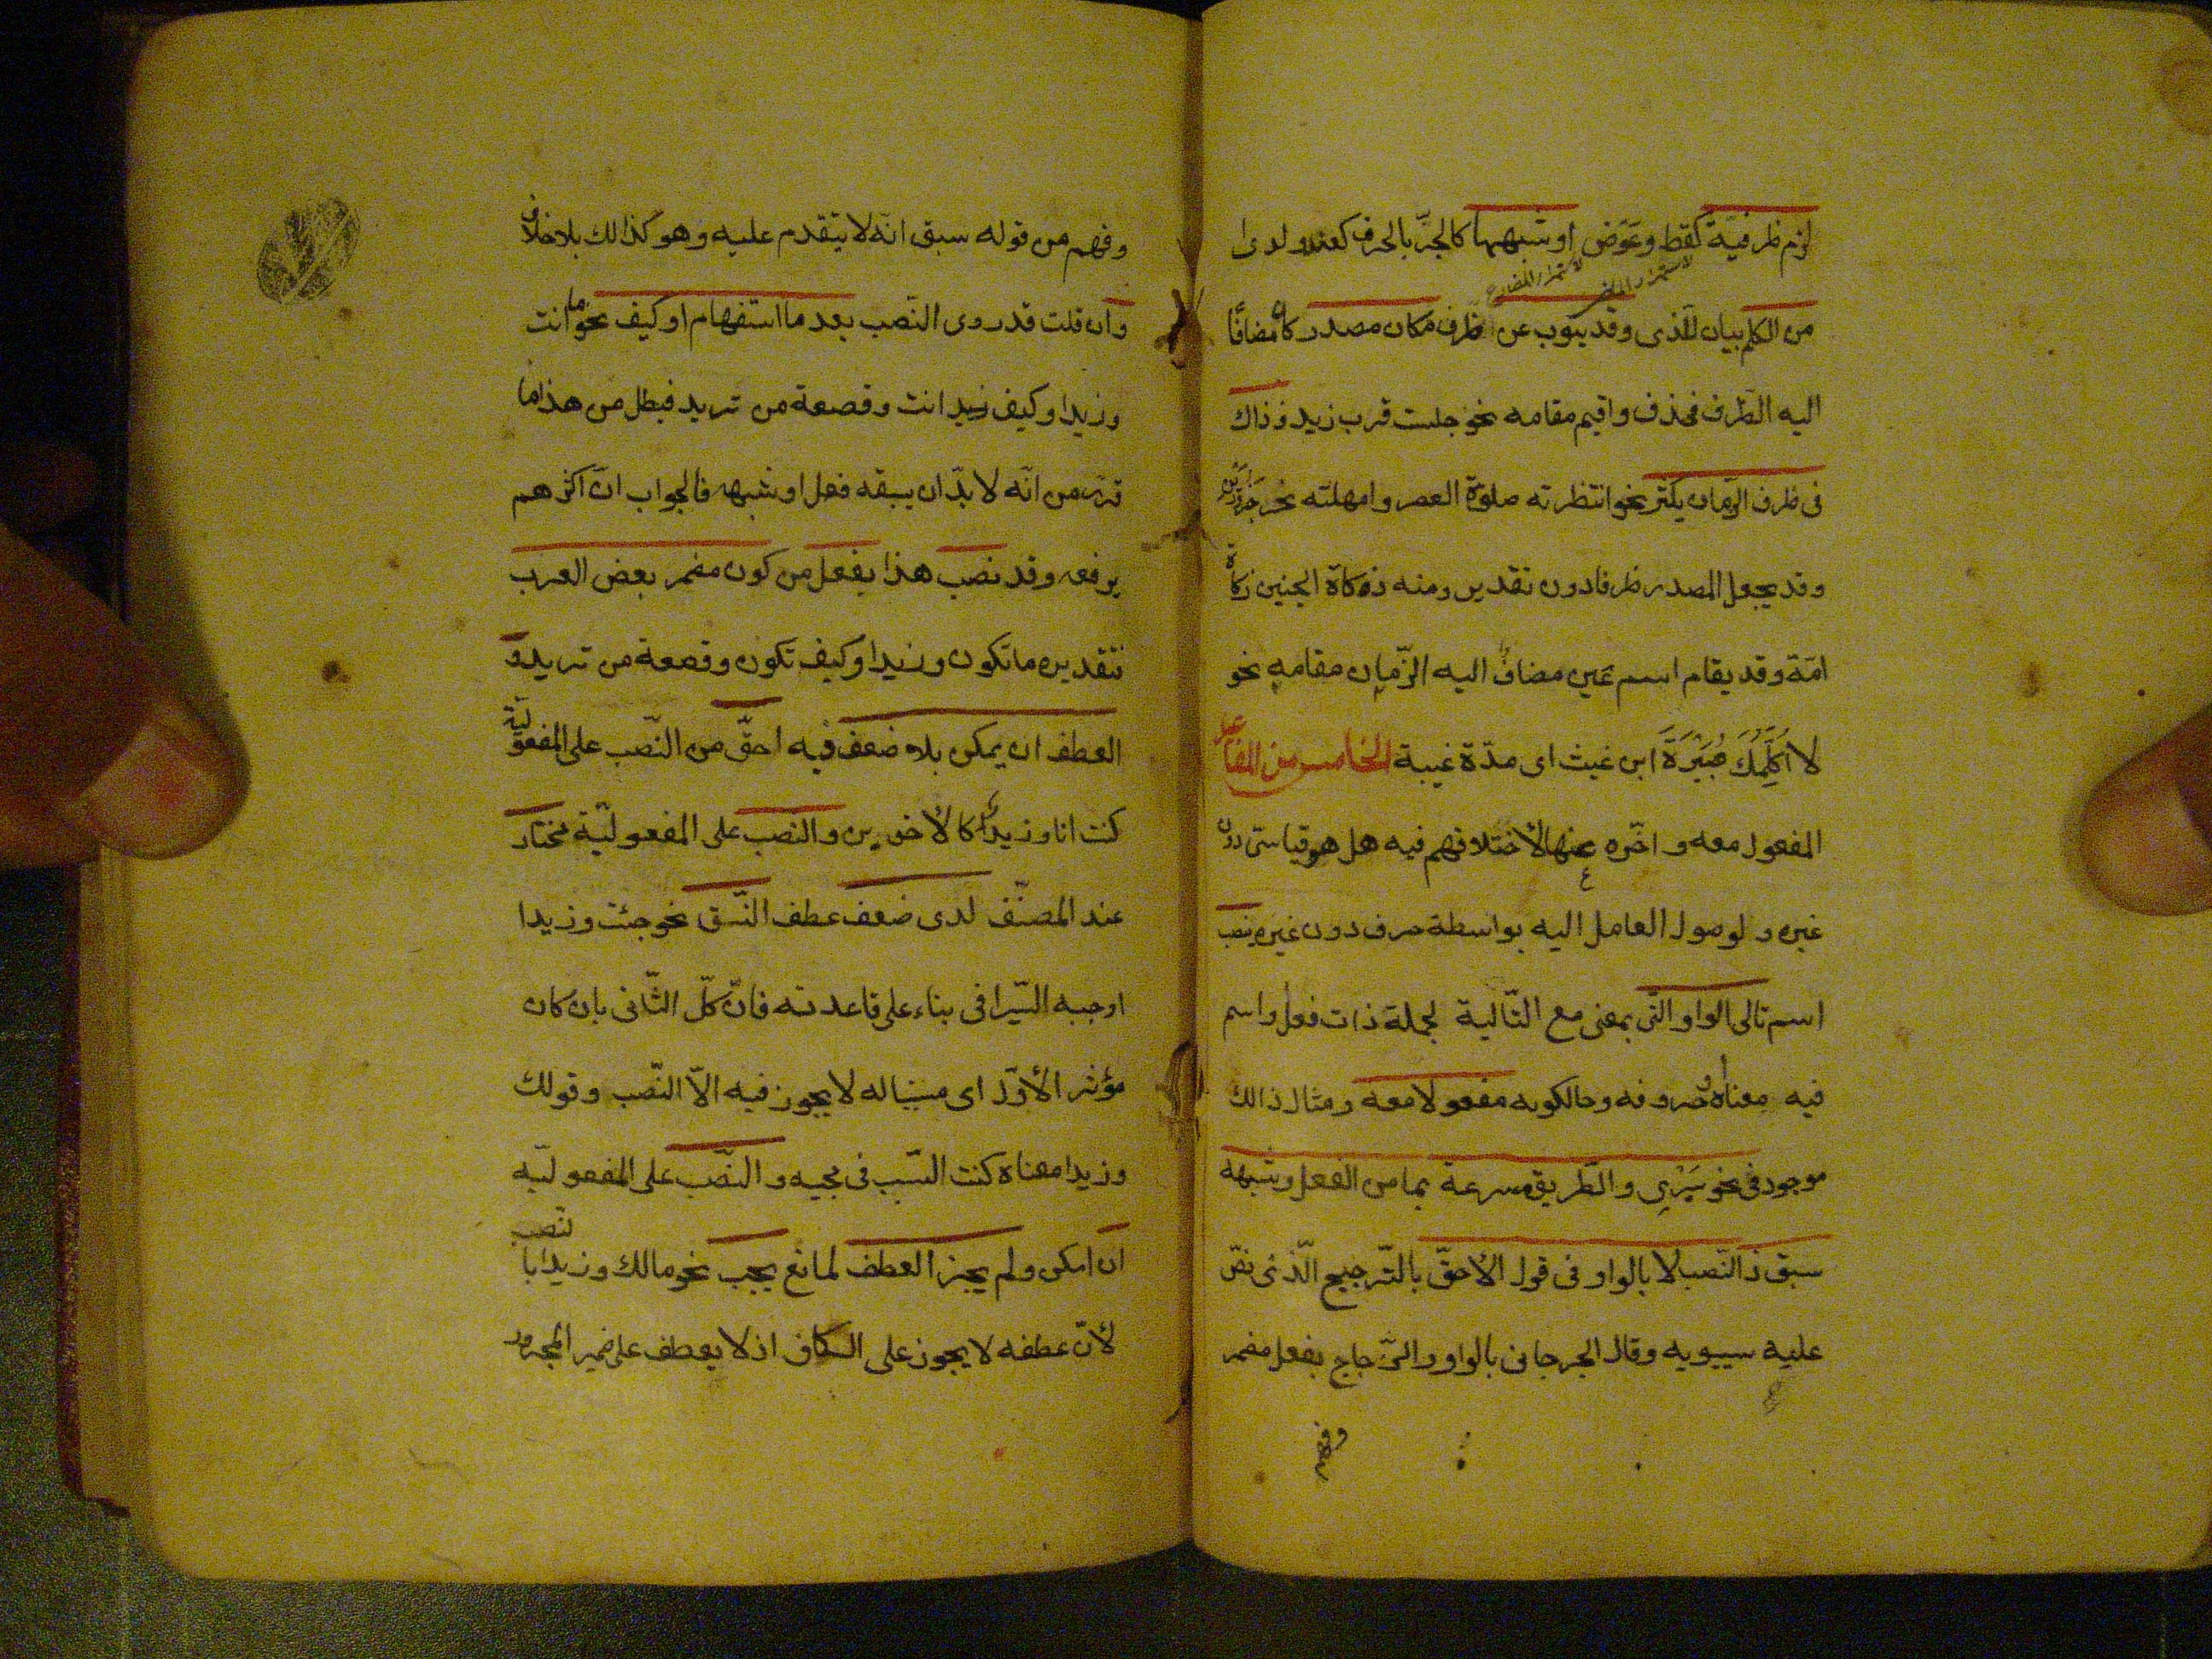 لزم ظرفيّة كقط وعَوَض او شبهها كالجرّ بالحرف كعند ولدى
لاستمرار الماضى
لاستمرار المضارع
من الكلم بيان للّذى وقد ينوب عن ظرف مكان مصدر كان مضافًا
اليه الظّرف فحذف واقيم مقامه نحو جلست قرب زيد وذاك
فى ظرف الزّمان يكثر نحو انتظرته صلوة العصر وامهلته نحر جزورين
وقد يجعل المصدر ظرفا دون تقدير ومنه ذكاة الجنين زكاة
امّه وقد يقام اسم عين مضاف اليه الزّمان مقامه نحو
لا اُكَلِّمُكَ هُبَيْرَةَ ابن غيث اى مدّة غيبة الخامس من المفاعيل
المفعول معه واخّره عنها لأختلافهم فيه هل هو قياسىّ دون
غيره ولوصول العامل اليه بواسطة حرف دون غيره ينصب
اسم تالى الواو الّتى بمعنى مع التّالية لجملة ذات فعل او اسم
فيه معناه وحروفه وحالكونه مفعولا معه ومثال ذالك
موجود فى نحو سَيْرِى والطّريق مسرعة بما من الفعل وشبهه
سبق ذا النّصب لا بالواو فى قول الأحقّ بالتّرجيح الّذى نصّ
عليه سيبويه وقال الجرجانى بالواو والزّجاج بفعل مضمر
وفهم
وفهم من قوله سبق انّه لا يتقدم عليه وهو كذالك بلا خلاف
وان قلت قد روى النّصب بعد ما استفهام او كيف نحو ما انت
وزيدا وكيف زيد انت وقصعة من ثريد فبطل من هذا ما
قرّر من انّه لا بدّ ان يسبقه فعل او شبهه فالجواب انّ اكثرهم
يرفعه وقد نصب هذا بفعل من كون مضمر بعض العرب
فتقديره ما تكون وزيدا وكيف تكون وقصعة من ثريد و
العطف ان يمكن بلا ضعف فيه احقّ من النّصب على المفعوليّة نحو
كنت انا وزيد كالأخوين والنّصب على المفعوليّة مختار
عند المصنّف لدى ضعف عطف النّسق نحو جئت وزيدا
اوجبه السّيرافى بناء على قاعدته فانّ كلّ الثّانى بان كان
مؤثر الأوّل اى مسبّبا له لا يجوز فيه الاّ النّصب وقولك
وزيدا معناه كنت السّبب فى مجيه والنّصب على المفعوليّه
ان امكن ولم يجز العطف لمانع يجب نحو مالك وزيدا بالنّصب
لأنّ عطفه لا يجوز على الكاف اذ لا يعطف على ضمير المجرور